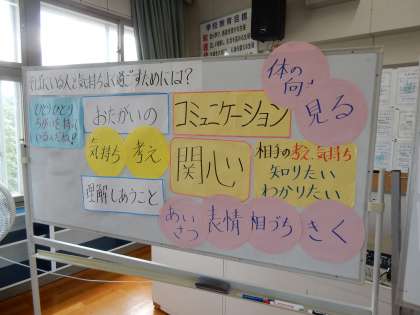 そばにいる人と気持ちよい過ごすためには？
ひとりひとり
ちがいを持って
いるんだね!!
おたがいの
コミュニケーション
体の
向き
見る
気持ち
考え
関心
相手の考え、気持ち
知りたい
わかりたい
理解しあうこと
あい
さつ
表情
相づち
きく
学校教育目標